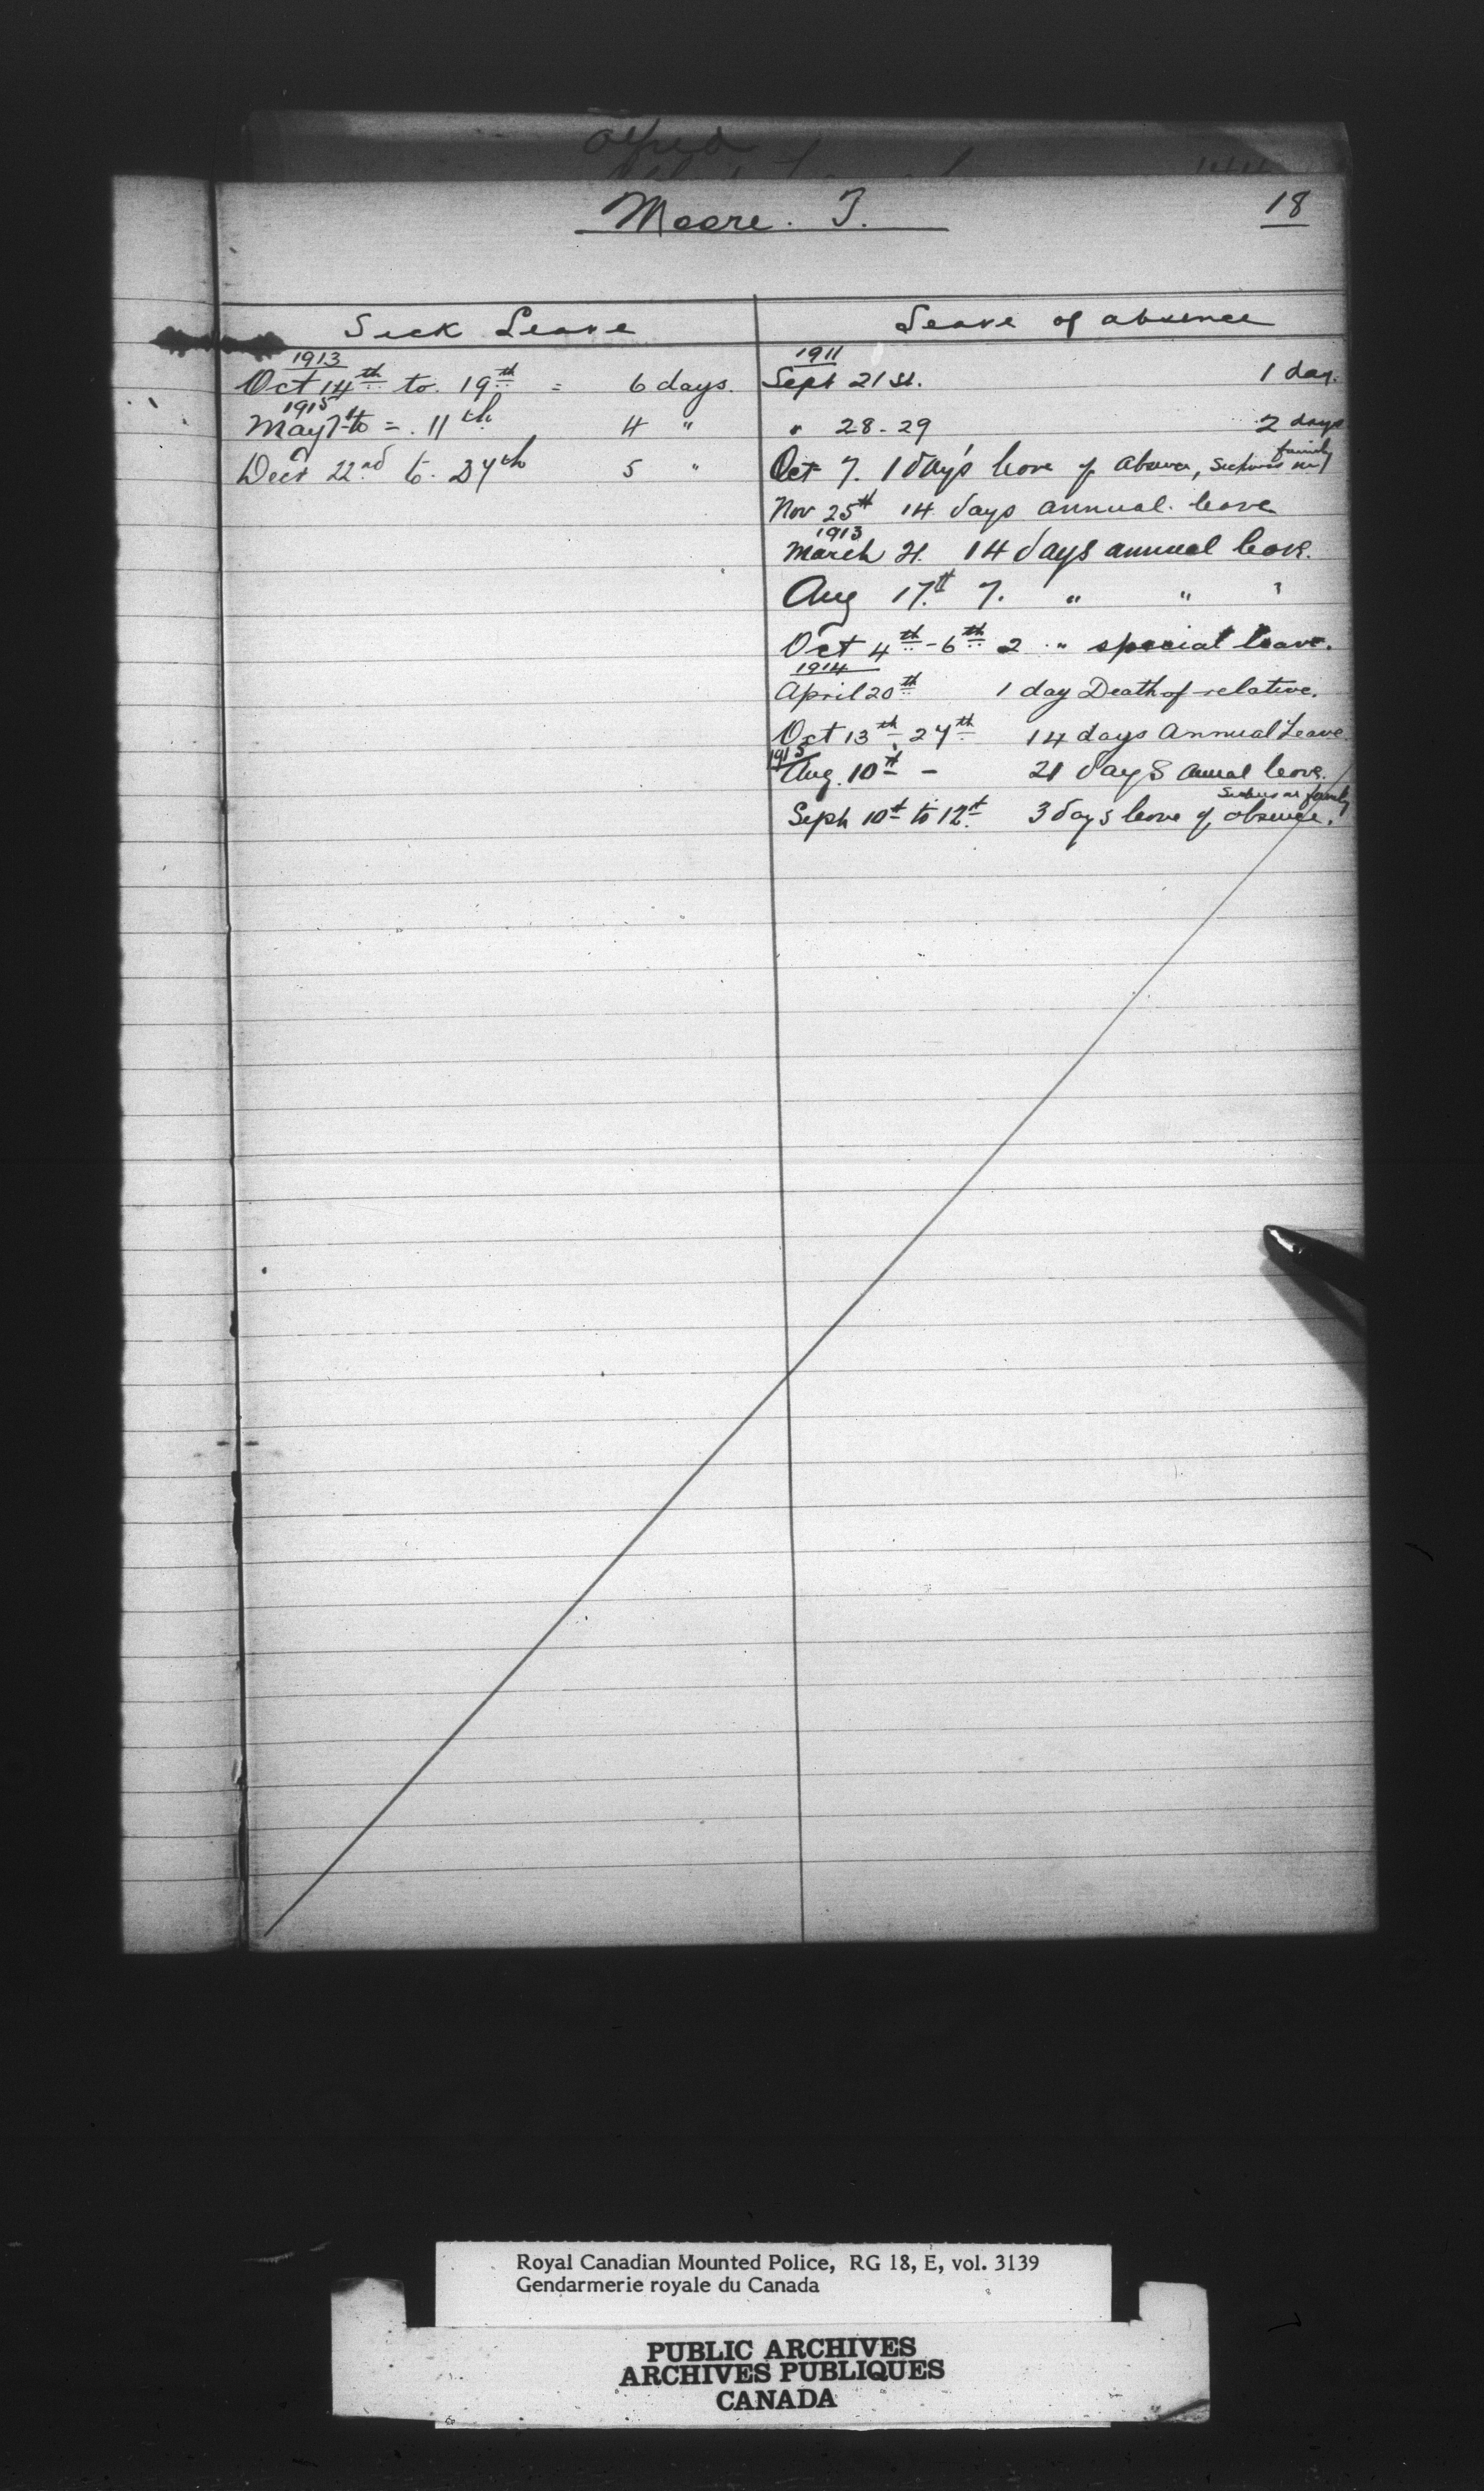 Alfred
Moore. T.
18
Sick Leave
1913
Oct 14th to. 19th = 6 days.
1915
May 7th to = . 11th 4 "
Dect 22nd to. 27th 5 "
Leave of absence
1911
Sept 21st. 1 day.
" 28-29 2 days
family
Oct 7. 1 day's leave of absence, Sickness in
Nov 25th 14 days annual. leave
1913
March 21. 14 days annual leave.
Aug 17th 7. " " "
Oct 4th - 6th 2 " special leave.
1914
April 20th 1 day Death of relative.
Oct 13th, 27th 14 days Annual Leave.
1915
Aug. 10th - 21 days Annual leave.
Sickness in family
Sept 10th to 12th 3 days leave of absence.
Royal Canadian Mounted Police, RG 18, E, vol. 3139
Gendarmerie royale du Canada
PUBLIC ARCHIVES
ARCHIVES PUBLIQUES
CANADA